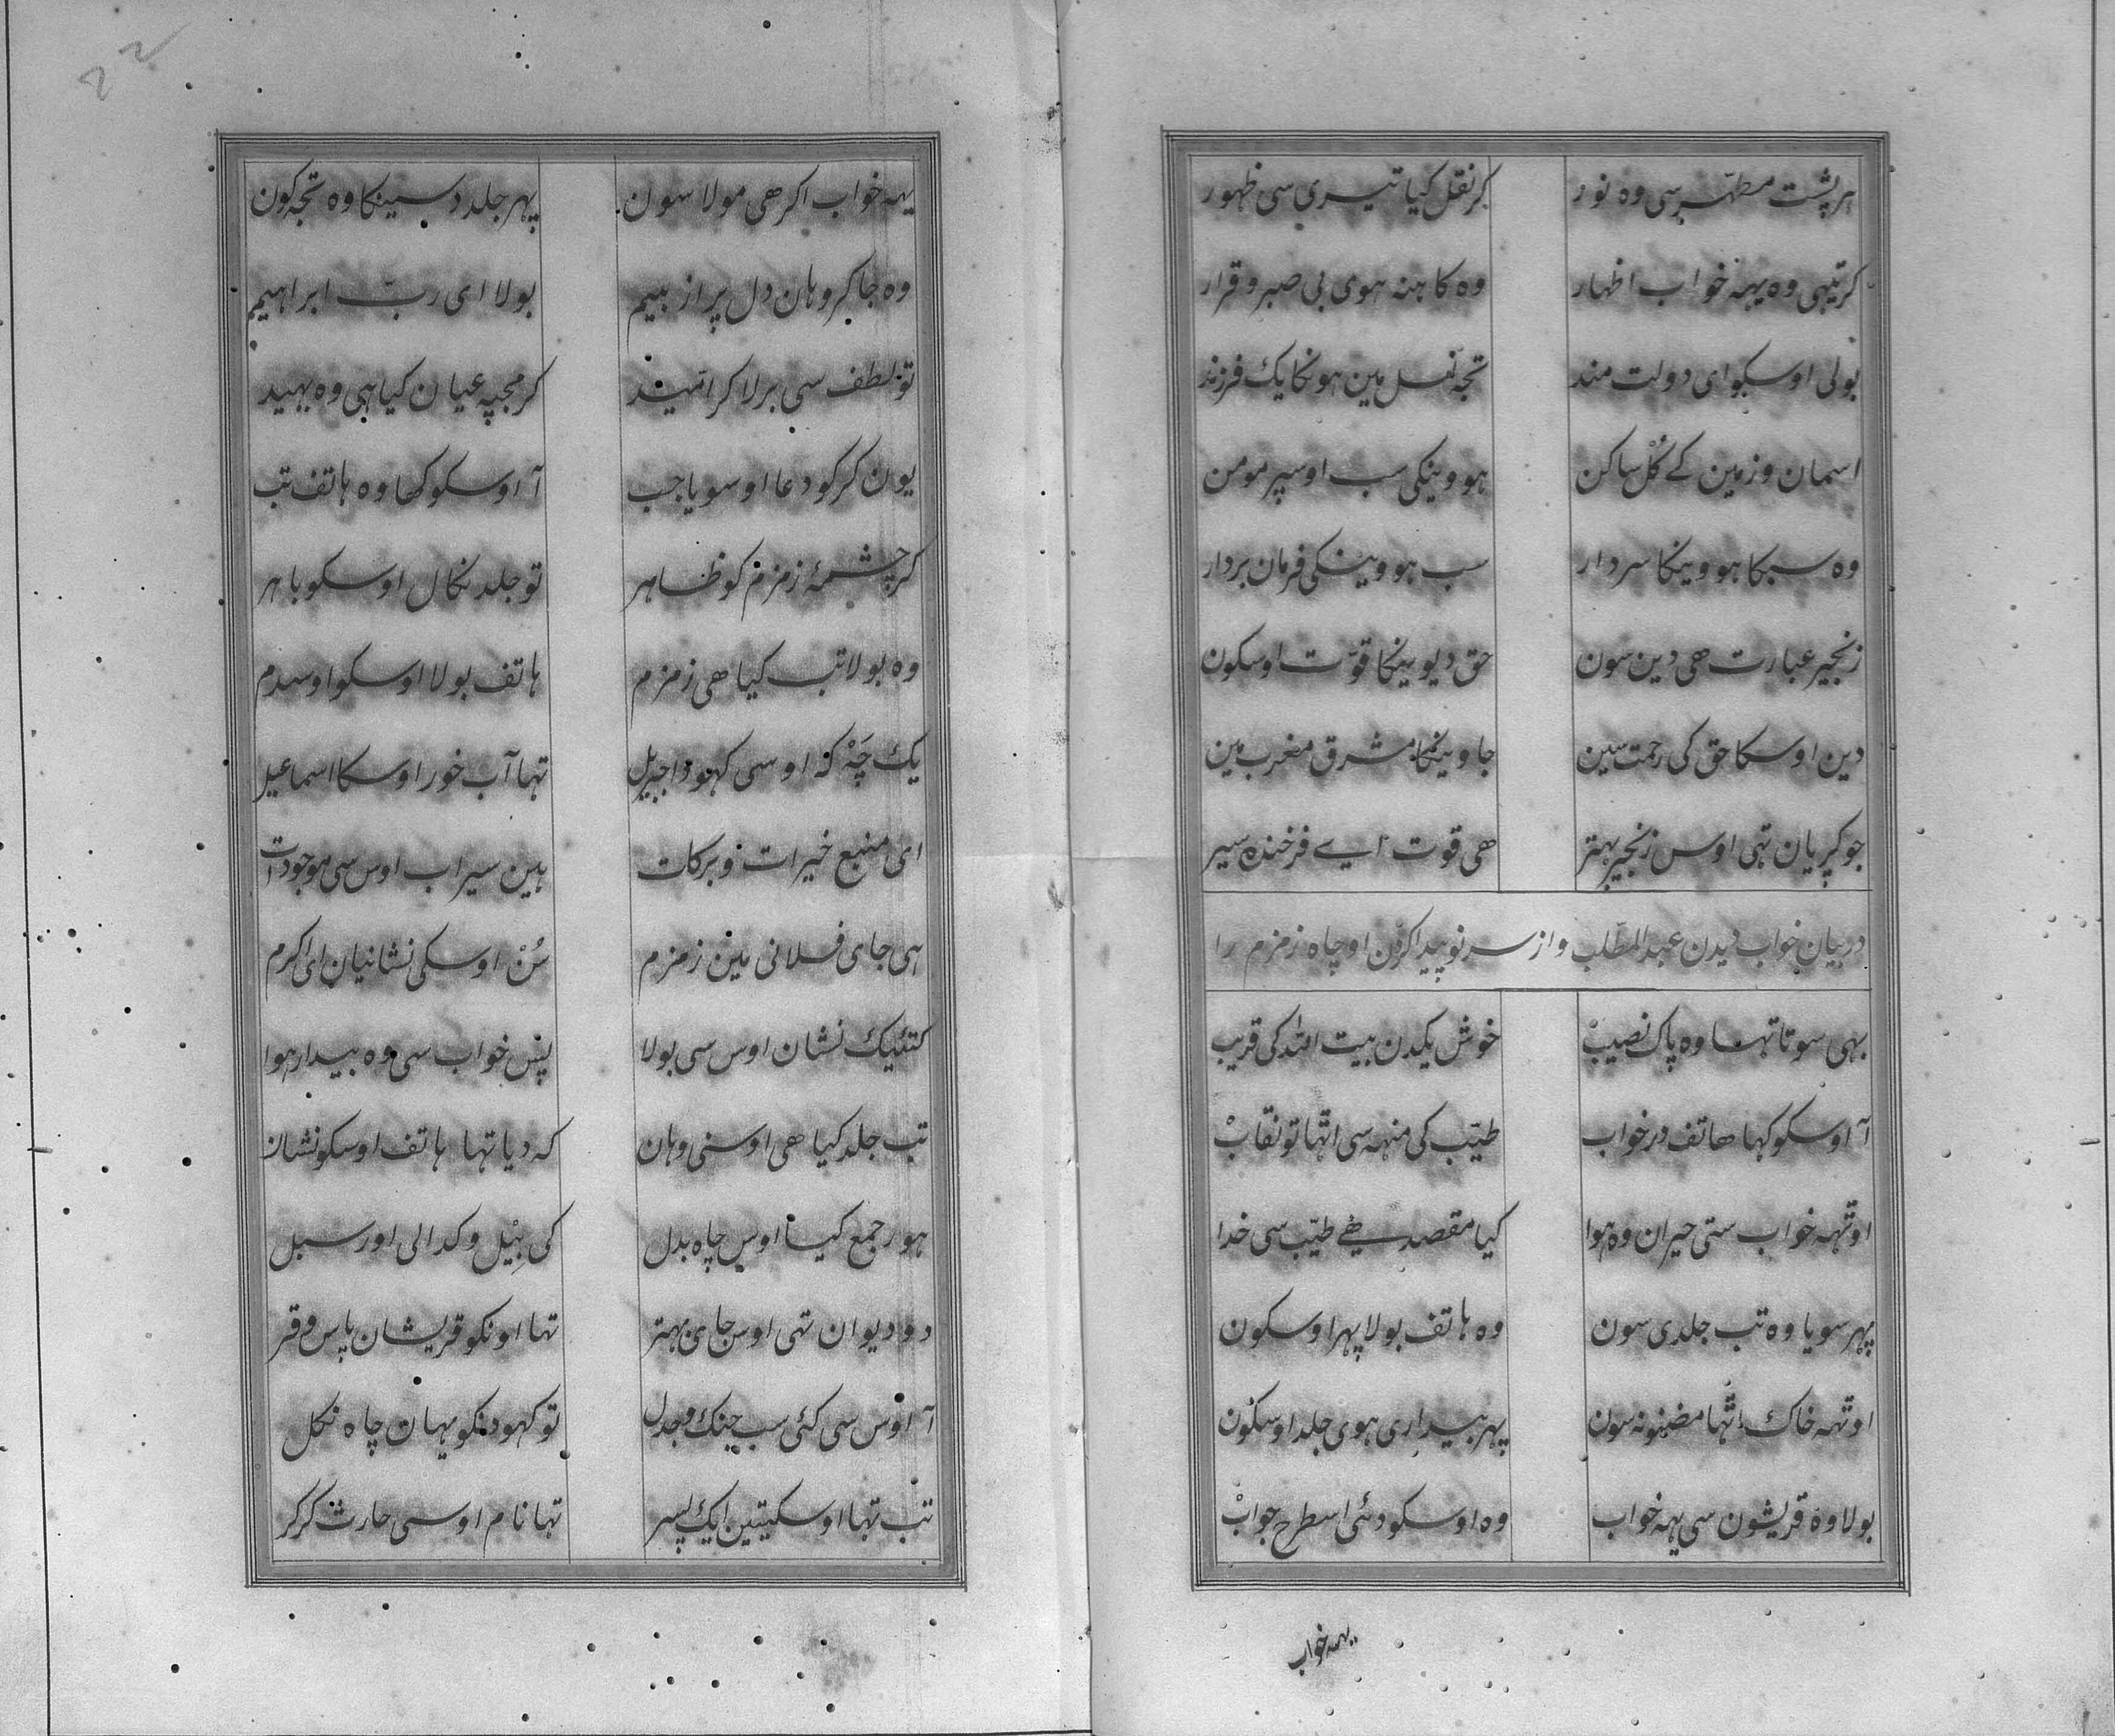 ہر پشت مطہّر سی وہ نور کر نقل کیا تیری سی ظہور
کرتیہی وہ یہہ خواب اظہار وہ کاہنہ ہوی بی صبر و قرار
بولی اوسکو ای دولت مند تجہ نسل مین ہونکا یک فرزند
اسمان و زمین کے کُل ساکن ہووینکی سب اوسپر مومن
وہ سبکا ہووینکا سردار سب ہووینکی فرمان بردار
زنجیر عبارت ھی دین سون حق دیوینکا قوّت اوسکون
دین اوسکا حق کی رحمت سین جاوینکا مشرق مغرب مین
جو کڑیان تہی اوس زنجیر بہتر ھی قوت اے فرخندہ سیر
در بیان خواب دیدن عبدالمطّلب و از سر نو پیدا کردن او چاہ زمزم را
بہی سوتا تہا وہ پاک نصیب خوش یکدن بیت اللہ کی قریب
آ اوسکو کہا ھاتف در خواب طیّب کی منہہ سی اتہا تو نقاب
اوتہہ خواب ستی حیران وہ ہوا کیا مقصد ہے طیّب سی خدا
پہر سویا وہ تب جلدی سون وہ ہاتف بولا پہر اوسکون
اوتہہ خاک اتہا مضنونہ سون پہر بیداری ہوی جلد اوسکون
بولا وہ قریشون سی یہہ خواب وہ اوسکو دئی اسطرح جواب
یہہ خواب
یہہ خواب اکر ھی مولا سون پہر جلد دسینکا وہ تجہ کون
وہ جا کر وہان دل پر از بیم بولا ای ربّ ابراہیم
تو لطف سی بر لا کر امّید کر مجپہ عیان کیا ہی وہ بہید
یون کر کو دعا او سویا جب آ اوسکو کھا وہ ہاتف تب
کر چشمۂ زمزم کو ظاہر تو جلد نکال اوسکو باہر
وہ بولا تب کیا ھی زمزم ہاتف بولا اوسکو اوسدم
یک چَہْ کہ اوسی کہودا جبریل تہا آب خور اوسکا اسماعیل
ای منبع خیرات و برکات ہین سیراب اوس سی موجودات
ہی جای فلانی مین زمزم سُنْ اوسکی نشانیان ای اکرم
کتئیک نشان اوس سی بولا پس خواب سی وہ بیدار ہوا
تب جلد کیا ھی اوسنی وہان کہ دیا تہا ہاتف اوسکو نشان
ہور جمع کیا اوس چاہ بدل کی بیْل و کدالی اور سبل
دو دیوان تہی اوس جای بہتر تہا اونکو قریشان پاس وقر
آ اوس سی کئی سب جنک و جدل تو کہود نکو یہان چاہ نکل
تب تہا اوسکیتین ایک پسر تہا نام اوسی حارث کر کر